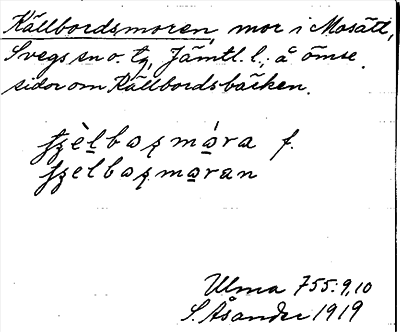 Källbordsmoren, mor i Mosätt,
Svegs sn o. tg, Jämtl. l., å ömse
sidor om Källbordsbäcken.
f.
Ulma 755:9,10
S. Åsander 1919